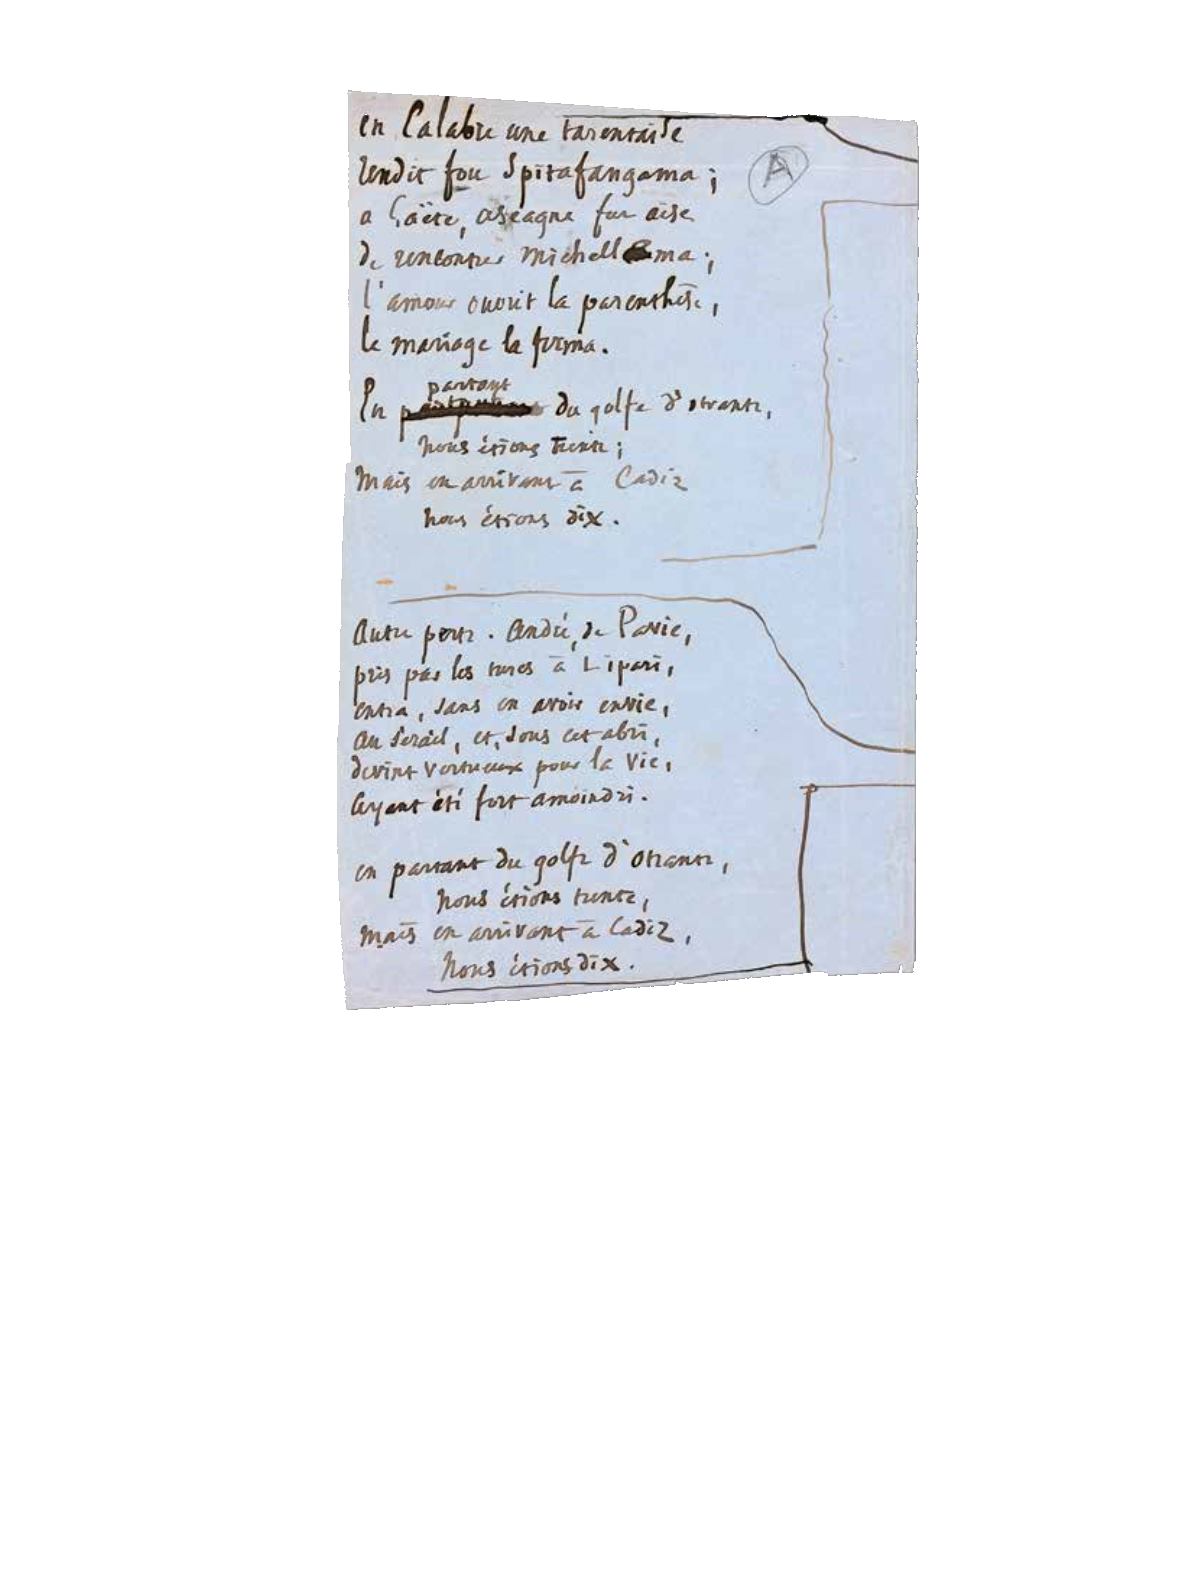 en Calabre une tarentaise
rendit fou Spitafangama ;
A
a Gaëte, Ascagne fut aise
de rencontrer Michellema ;
l'amour ouvrit la parenthèse,
le mariage la ferma.
partant
En du golfe d'Otrante,
nous étions trente ;
Mais en arrivant à Cadiz
nous étions dix.
Autre perte. André, de Pavie,
pris par les turcs à Lipari,
entra, sans en avoir envie,
au sérail, et, sous cet abri,
devint vertueux pour la vie,
ayant été fort amoindri.
en partant du golfe d'Otrante,
nous étions trente,
mais en arrivant à Cadiz,
nous étions dix.